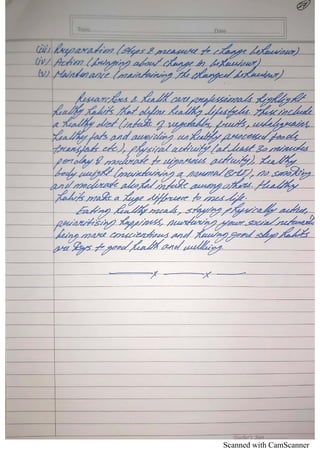 Date
(iii) Preparation (steps & measure to change behaviour)
(iv) Action (bringing about change in behaviour)
(v) Maintenance (maintaining the changed behaviour)
Researchers & health care professionals highlight
healthy habits that define healthy lifestyles. These include
a healthy diet (intake of vegetables, fruits, wholegrains,
healthy fats and avoiding unhealthy processed foods,
transfats etc.), physical activity (at least 30 minutes
per day & moderate to vigorous activity), healthy
body weight (maintaining a normal BMI), no smoking
and moderate alcohol intake among others. Healthy
habits make a huge difference to ones life.
Eating healthy meals, staying physically active,
prioritising happiness, nurturing your social
being more conscientious and having good sleep habits
are keys to good health and wellbeing.
Scanned with CamScanner